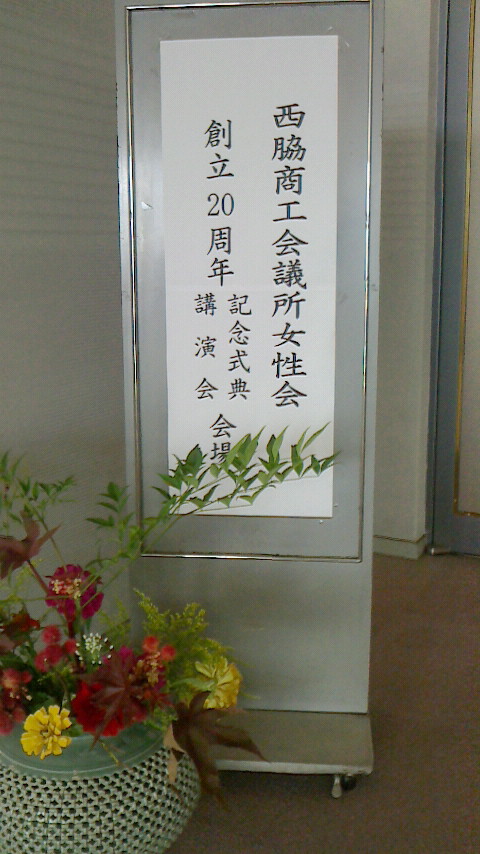 西脇商工会議所女性会
創立20周年
記念式典
講演会
会場